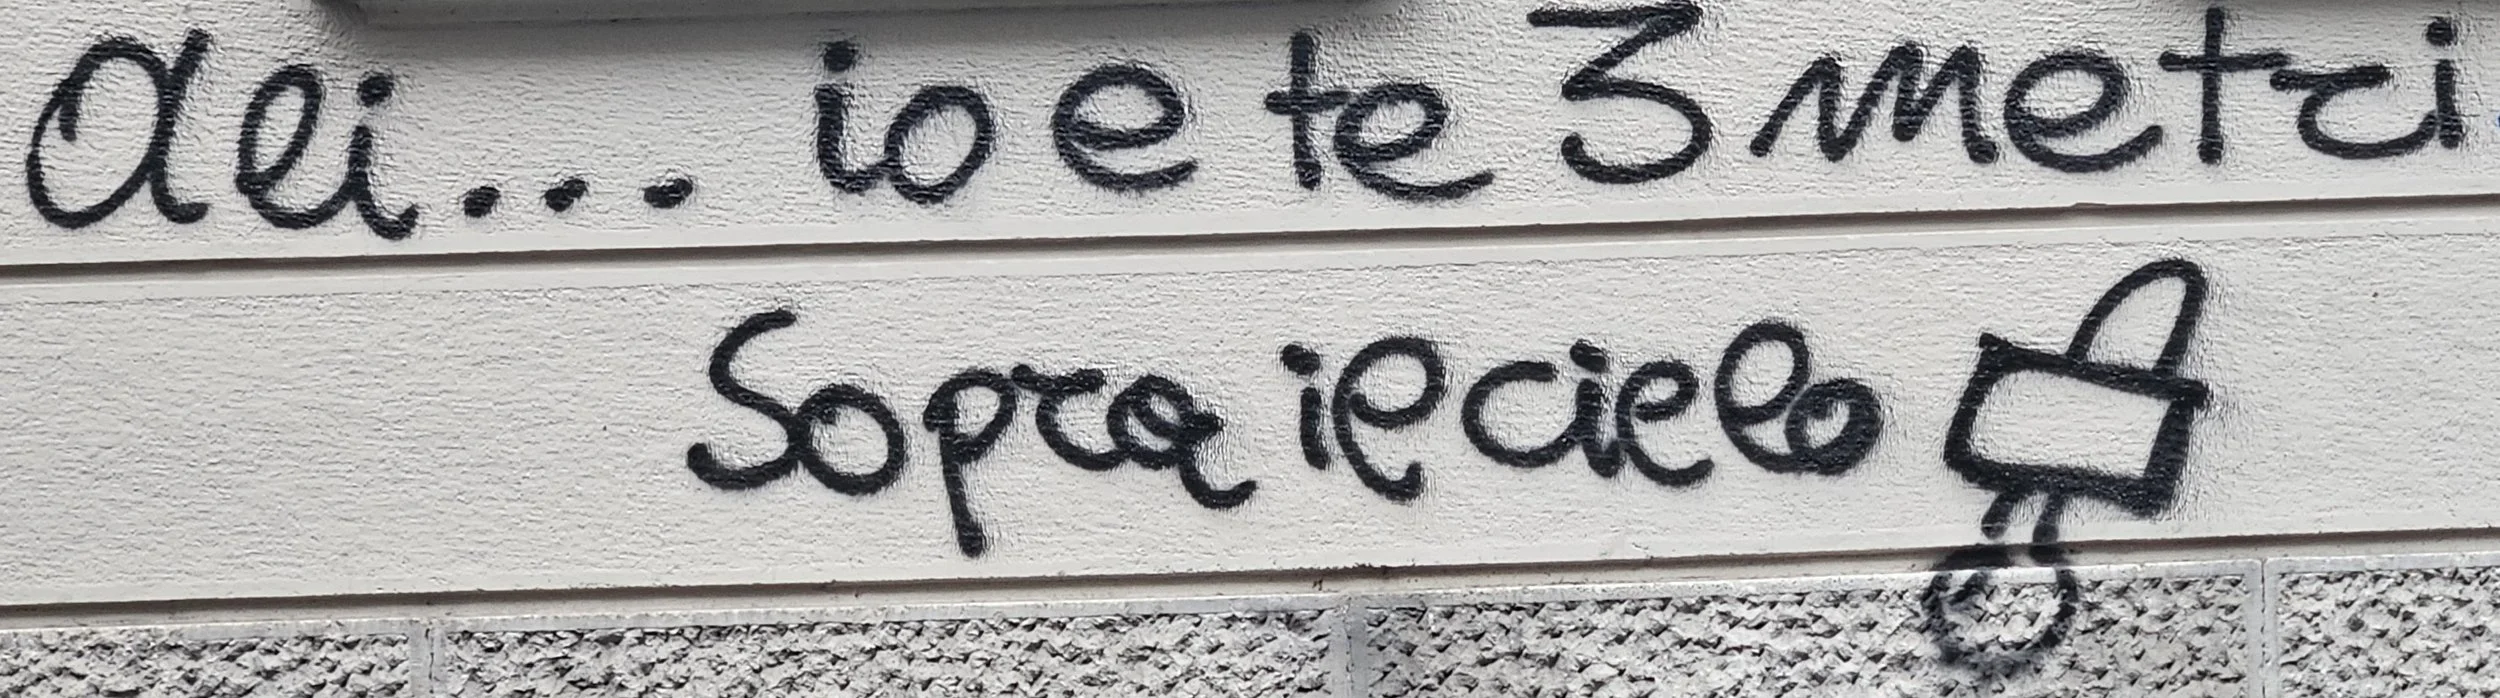 Alei.... io e te 3 metri
Sopra il cielo